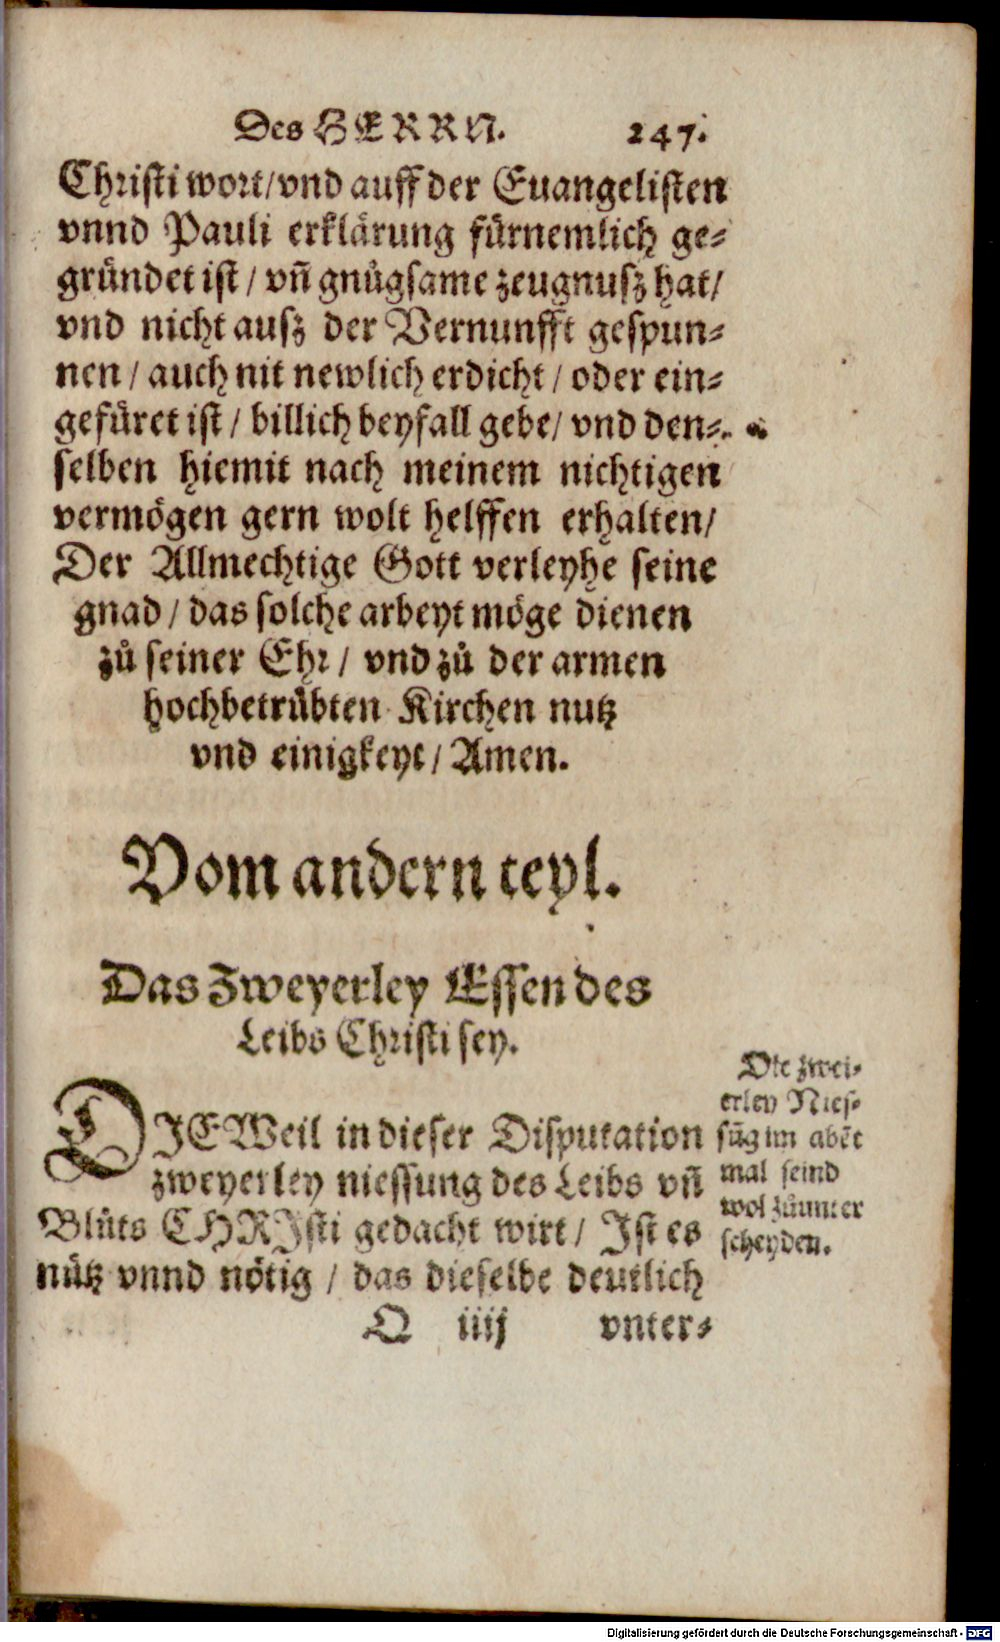 Des HERRN. 247.
Christi wort/vnd auff der Euangelisten
vnnd Pauli erklärung fürnemlich ge-
gründet ist / vñ gnůgsame zeugnusz hat/
vnd nicht ausz der Vernunfft gespun-
nen / auch nit newlich erdicht / oder ein-
gefüret ist / billich beyfall gebe/ vnd den-
selben hiemit nach meinem nichtigen
vermögen gern wolt helffen erhalten/
Der Allmechtige Gott verleyhe seine
gnad / das solche arbeyt möge dienen
zů seiner Ehr / vnd zů der armen
hochbetrübten Kirchen nutz
vnd einigkeyt / Amen.
Vom andern teyl.
Das Zweyerley Essen des
Leibs Christi sey.
DIEWeil in dieser Disputation
zweyerley niessung des Leibs vñ
Blůts CHRIsti gedacht wirt / Ist es
nütz vnnd nötig / das dieselbe deutlich
Die zwei-
erley Nies-
sūg im abēt
mal seind
wol zůunter
scheyden.
Q iiij vnter-
Digitalisierung gefördert durch die Deutsche Forschungsgemeinschaft - DFG